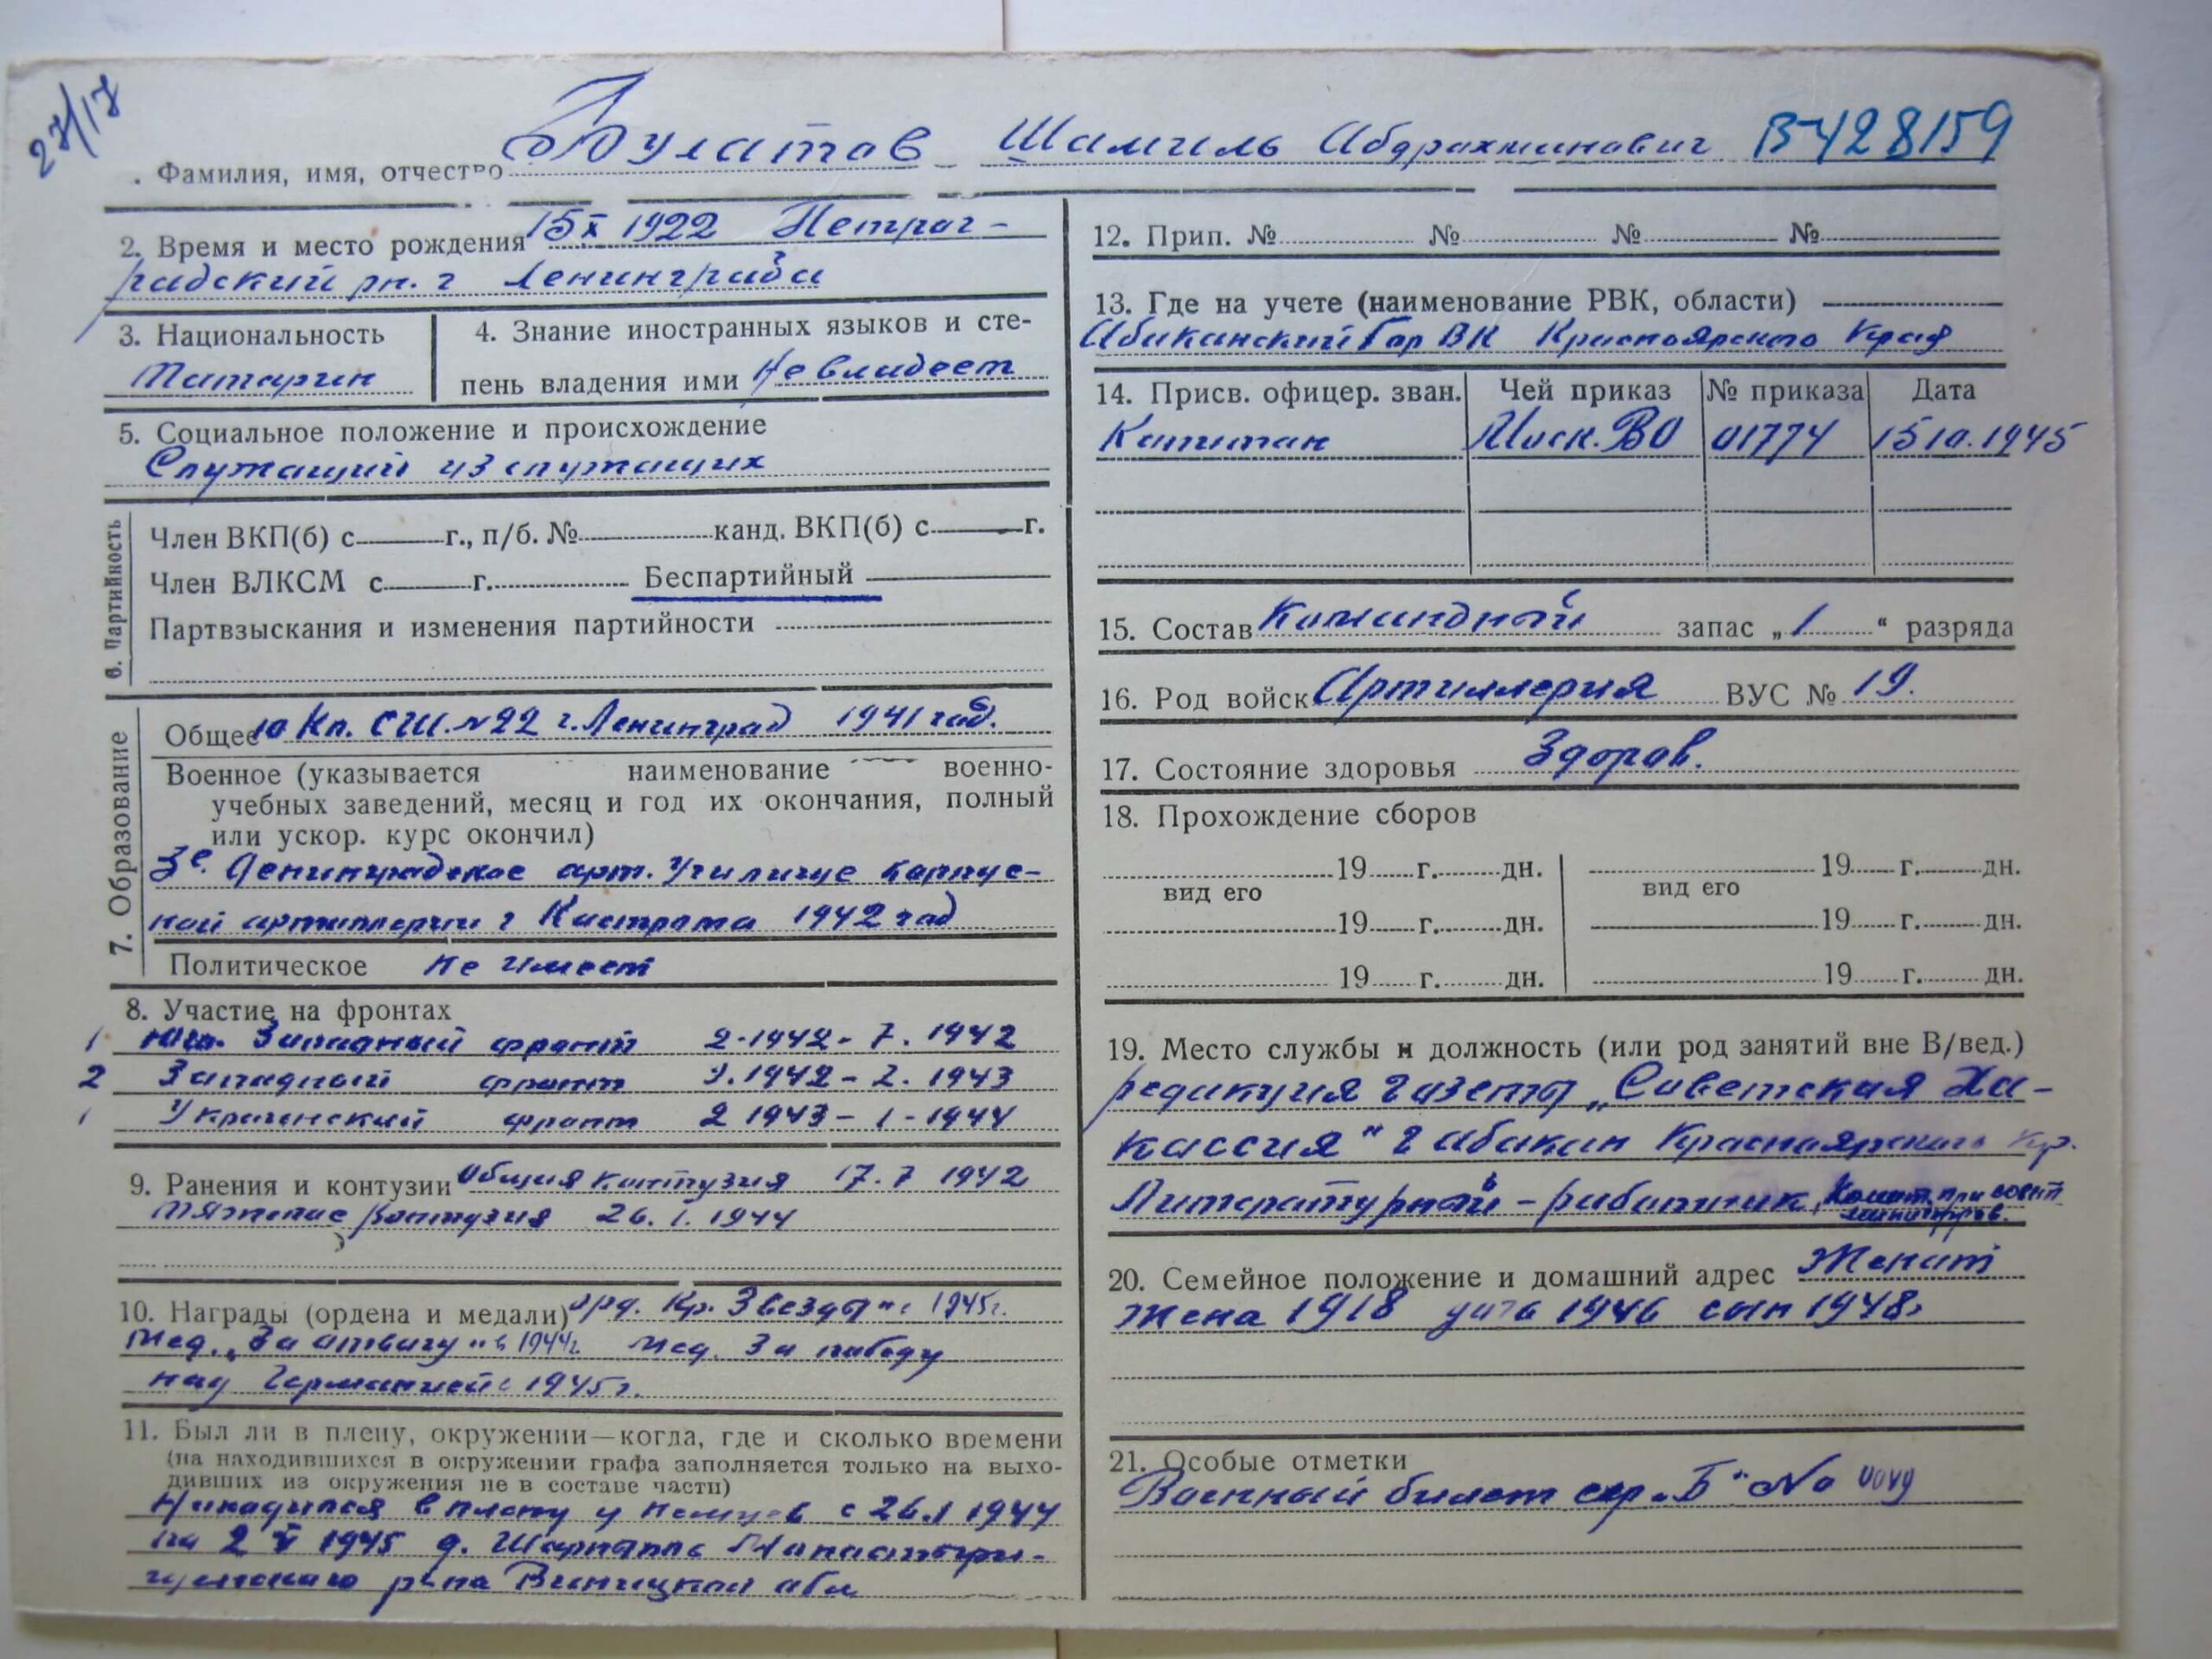 27/17
. Фамилия, имя, отчество Булатов Шамиль Абдрахманович В-428159
2. Время и место рождения 15 X 1922 Петрог-
радский рн. г Ленинграда
3. Национальность
Татарин
4. Знание иностранных языков и сте-
пень владения ими Не владеет
5. Социальное положение и происхождение
Служащий из служащих
6. Партийность
Член ВКП(б) с г., п/б. № канд. ВКП(б) с г.
Член ВЛКСМ с г. Беспартийный
Партвзыскания и изменения партийности
7. Образование
Общее 10 Кл. СШ. №22 г. Ленинград 1941 год.
Военное (указывается наименование военно-
учебных заведений, месяц и год их окончания, полный
или ускор. курс окончил)
3е. Ленинградское арт. Училище корпус-
ной артиллерии г Кострома 1942 год
Политическое Не имеет
8. Участие на фронтах
1 Юго. Западный фронт 2-1942 - 7. 1942
2 Западный фронт 9.1942 - 2. 1943
1 Украинский фронт 2 1943 - 1 - 1944
9. Ранения и контузии Общая контузия 17. 7 1942
тяжелая контузия 26. 1. 1944
10. Награды (ордена и медали) орд. Кр. Звезда" с 1945г.
мед. „За отвагу" в 1944г. мед. За победу
над Германией с 1945г.
11. Был ли в плену, окружении—когда, где и сколько времени
(на находившихся в окружении графа заполняется только на выхо-
дивших из окружения не в составе части)
Находился в плену у немцев с 26.1 1944
по 2 V 1945 д.
р-на Винницкой обл
12. Прип. № № № №
13. Где на учете (наименование РВК, области)
Абаканский Гор ВК Красноярского Края
14. Присв. офицер. зван. Чей приказ № приказа Дата
Капитан Моск. ВО 01774 15 10. 1945
15. Состав Командный запас „1" разряда
16. Род войск Артиллерия ВУС № 19.
17. Состояние здоровья Здоров.
18. Прохождение сборов
19 г. дн. 19 г. дн.
вид его вид его
19 г. дн. 19 г. дн.
19 г. дн. 19 г. дн.
19. Место службы и должность (или род занятий вне В/вед.)
редакция газеты „Советская Ха-
кассия" г Абакан Красноярского кр.
Литературный - работник, Комит. при совет
министров.
20. Семейное положение и домашний адрес Женат
Жена 1918 дочь 1946 сын 1948г
21. Особые отметки
Военный билет сер. „Б" №